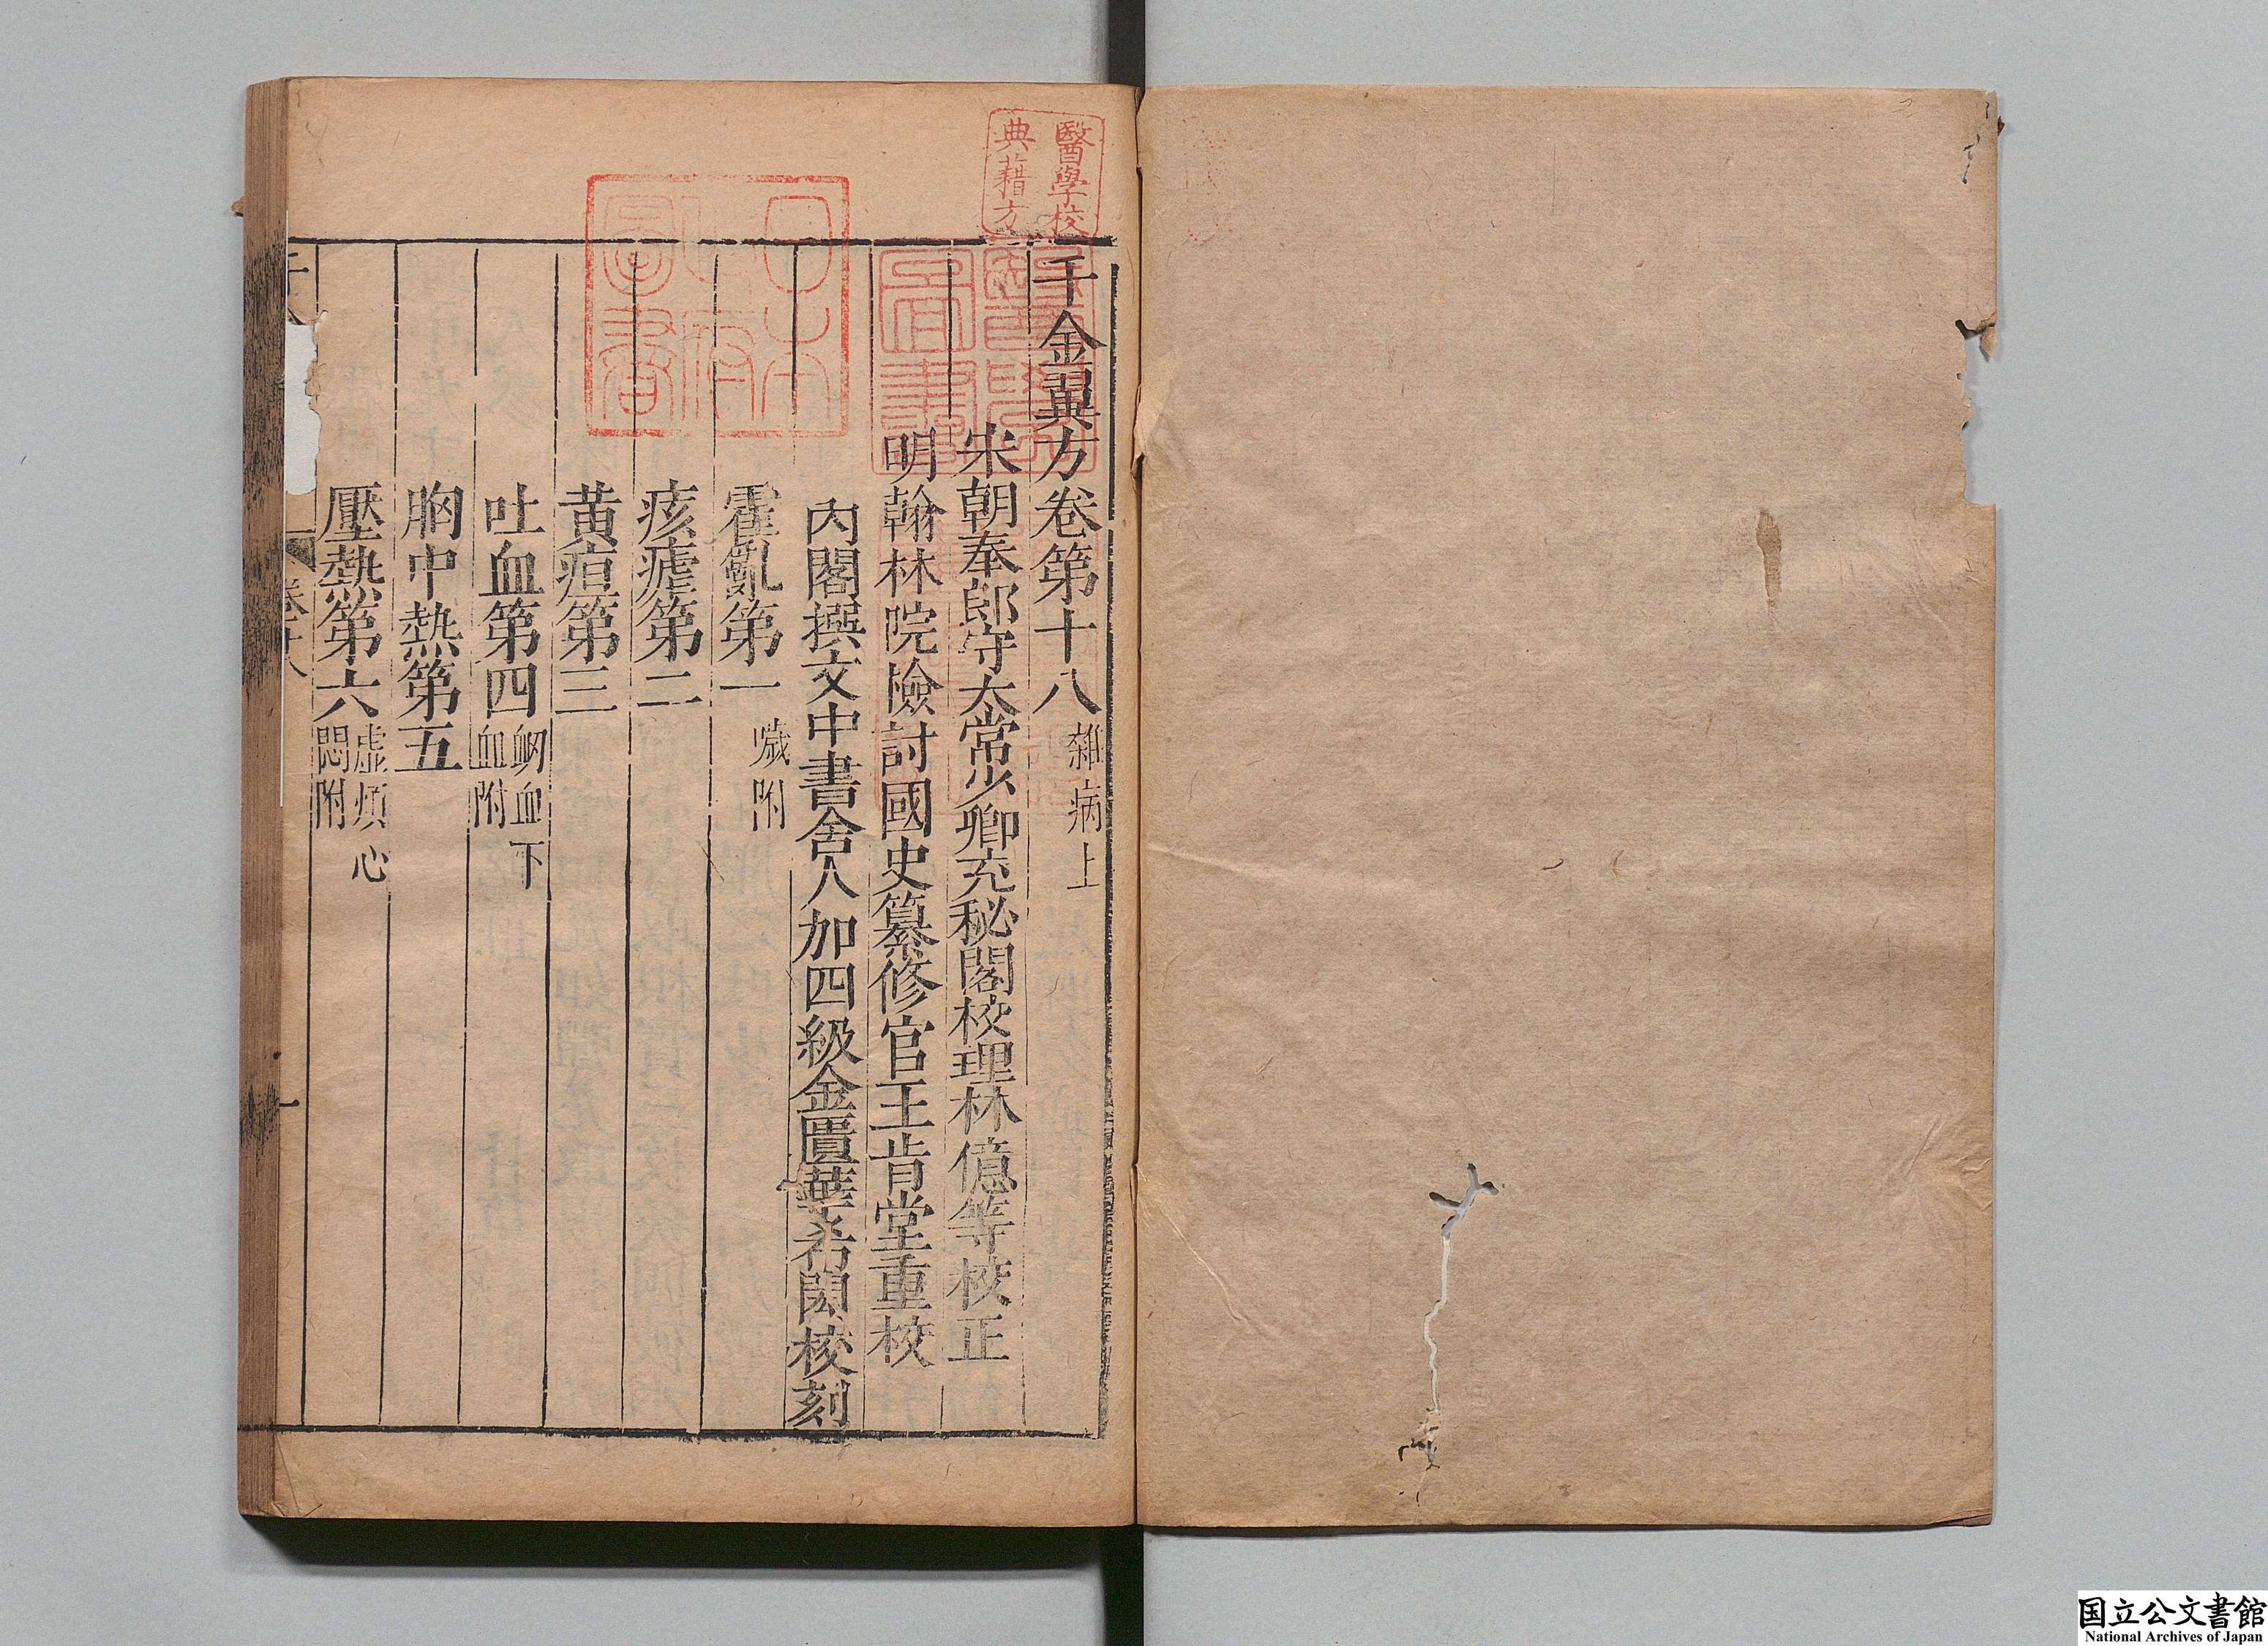 千金翼方卷第十八 雜病上
宋朝奉郎守太常少卿充秘閣校理林億等校正
明翰林院檢討國史纂修官王肯堂重校
內閣撰文中書舍人加四級金匱華希閎校刻
霍亂第一 噦附
痎瘧第二
黃疸第三
吐血第四 衂血下
血附
胸中熱第五
壓熱第六 虛煩心
悶附
卷十八
一
醫學校
典藉方
醫學
圖書
日本
政府
圖書
国立公文書館
National Archives of Japan